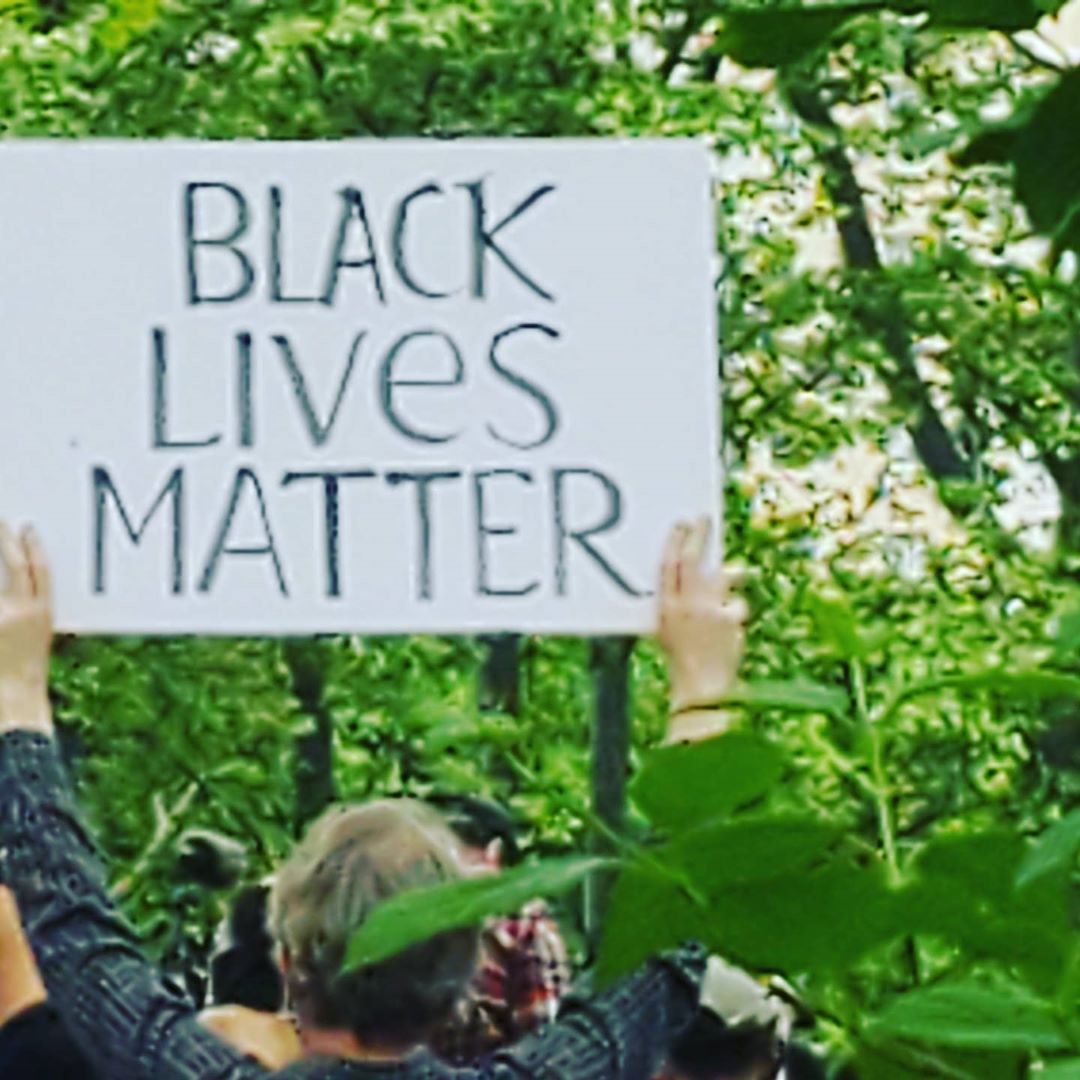 BLACK
LIVeS
MATTER